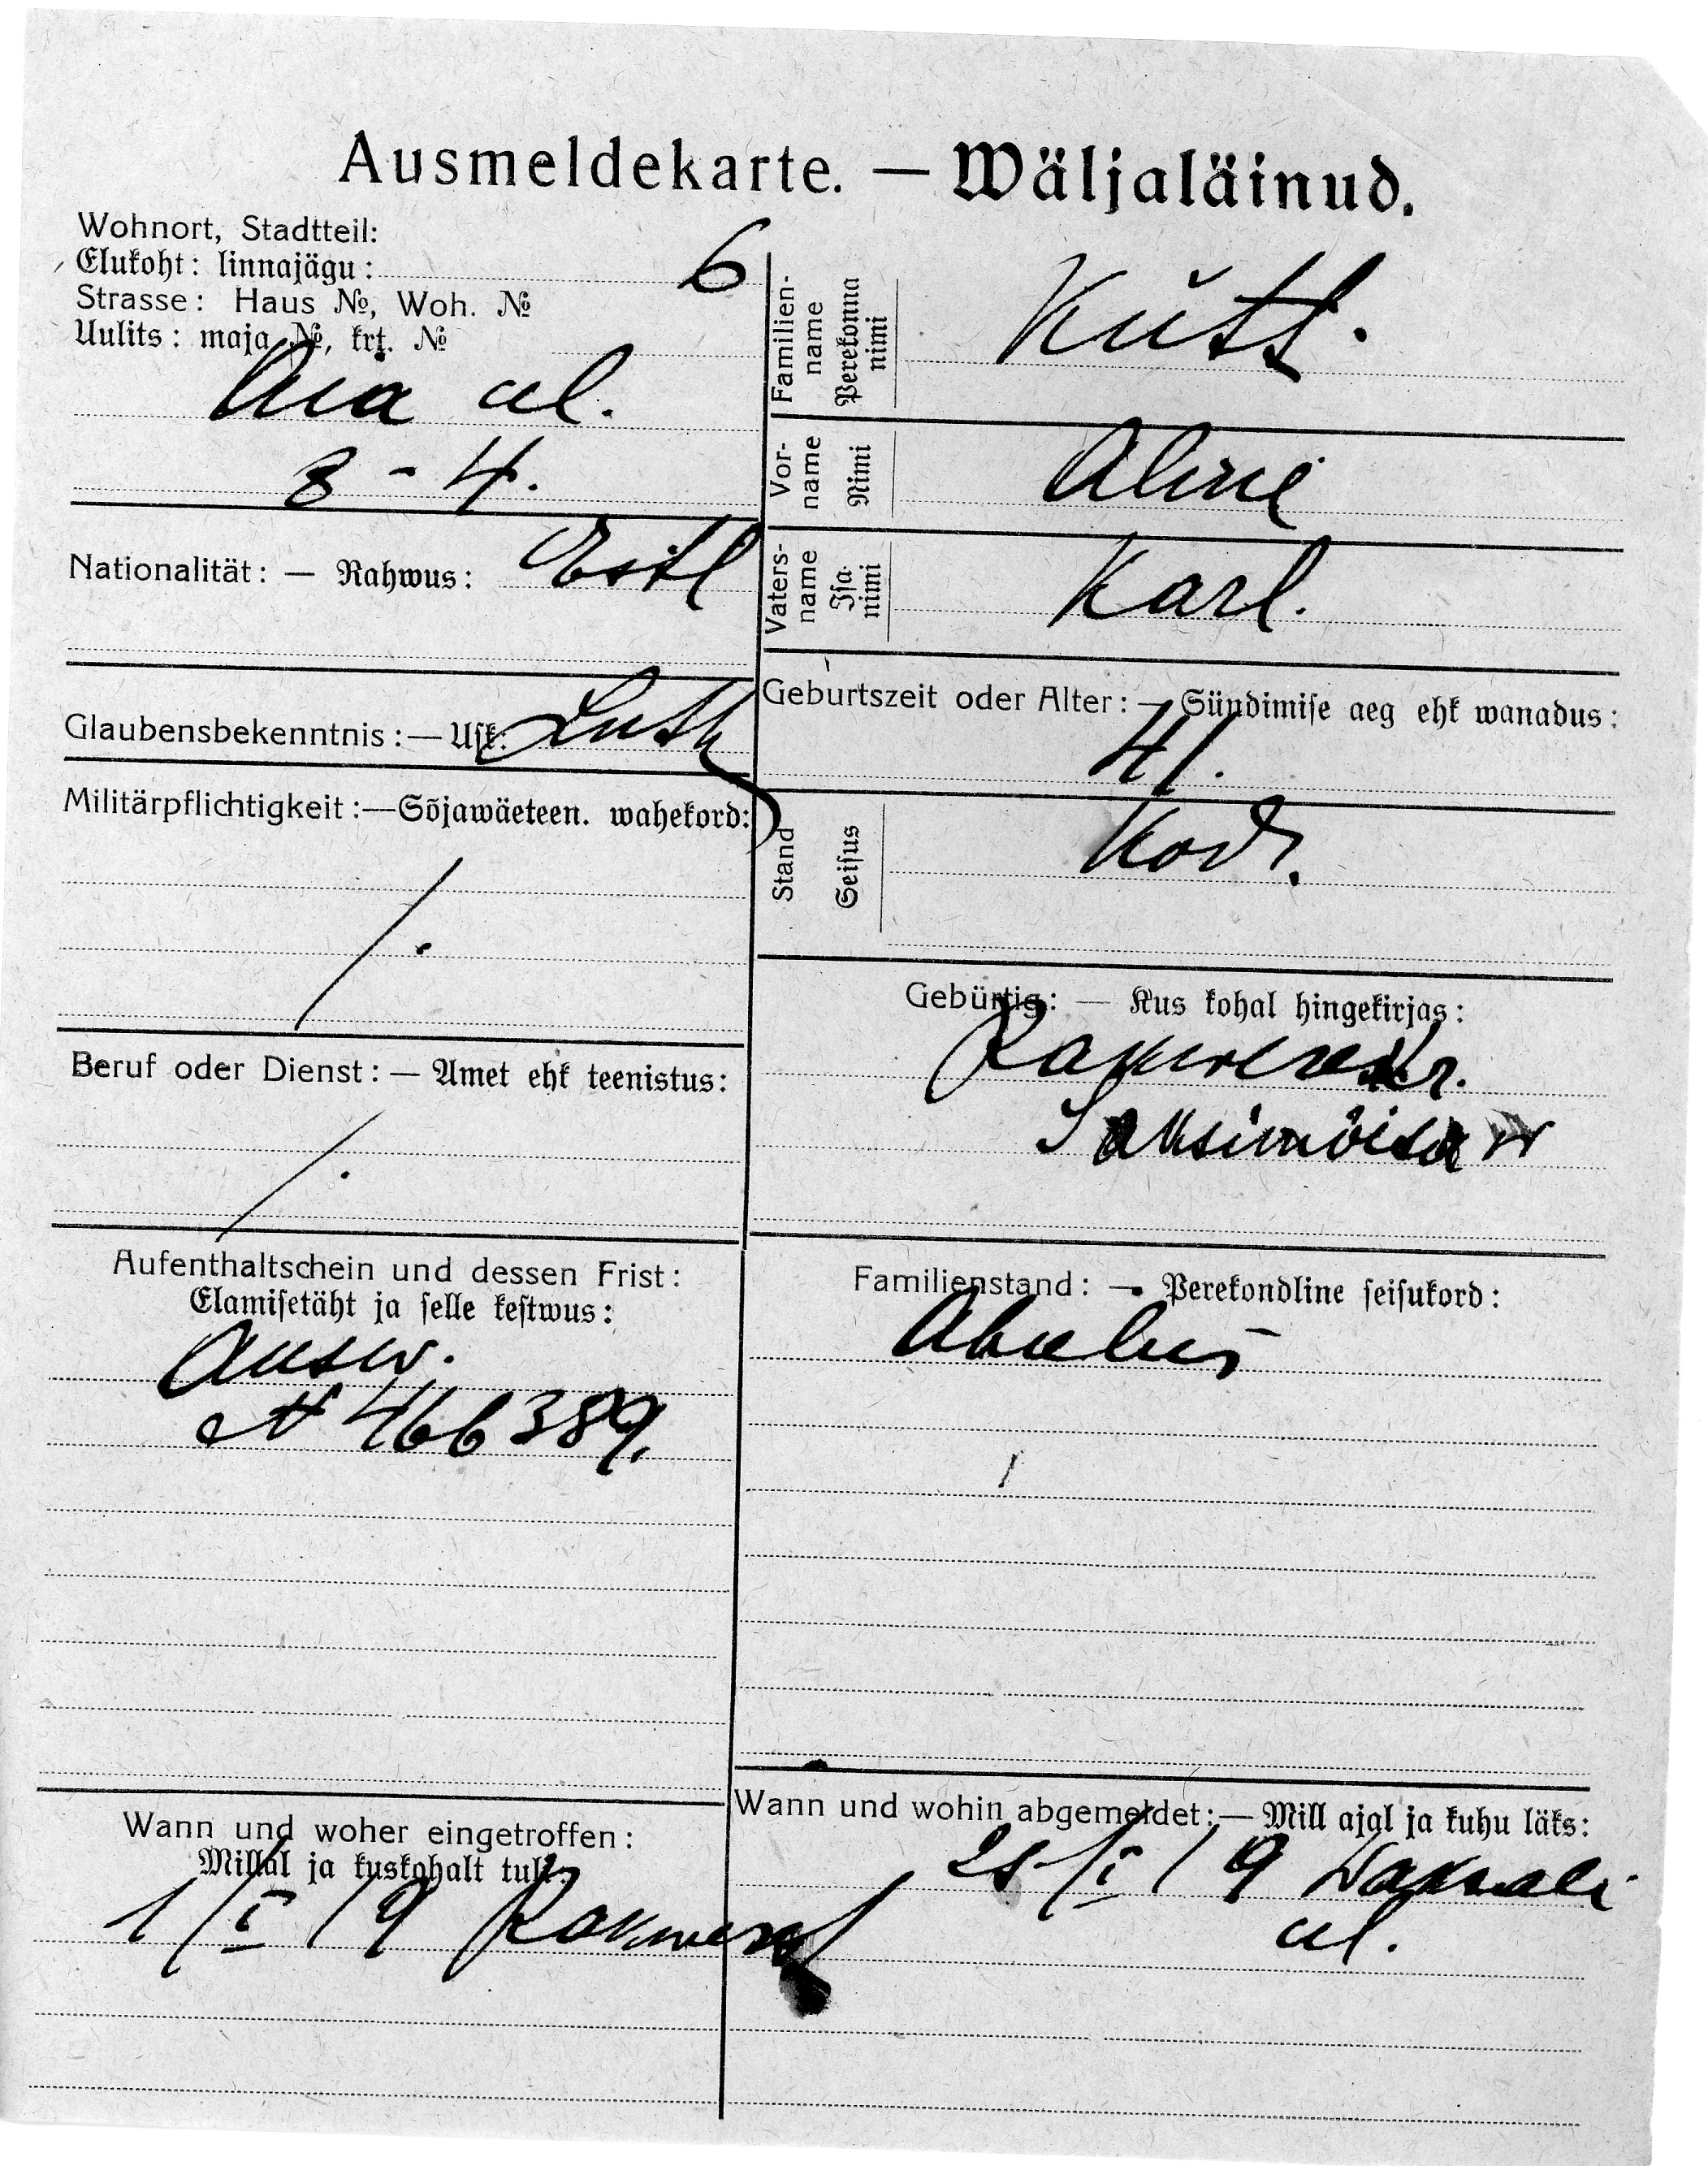 Ausmeldekarte. — Wäljaläinud.
Wohnort, Stadtteil:
Elukoht: linnajägu: 6
Strasse: Haus №, Woh. №
Uulits: maja №, krt. №
Aia ul.
8 - 4.
Nationalität: — Rahwus: Estl
Glaubensbekenntnis: — Usk: Luth
Militärpflichtigkeit: — Sõjawäeteen. wahekord:
/.
Beruf oder Dienst: — Amet ehk teenistus:
/.
Aufenthaltschein und dessen Frist:
Elamisetäht ja selle kestwus:
Ausw.
№ 466389.
Wann und woher eingetroffen:
Millal ja kuskohalt tuli:
1/I 19 Rakwerest
Familien-name Perekonna nimi Kütt.
Vor-name Nimi Aline
Vaters-name Isa nimi Karl.
Geburtszeit oder Alter: — Sündimise aeg ehk wanadus:
41.
Stand Seisus Kod.
Gebürtig: — Kus kohal hingekirjas:
Saksimõisa w
Familienstand: — Perekondline seisukord:
Abielus
Wann und wohin abgemeldet: — Mill ajal ja kuhu läks:
25/I 19 Waksali
ul.